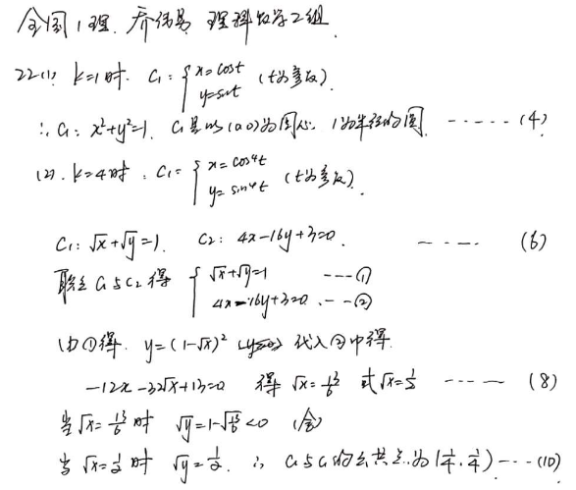 全国1理. 乔伟男 理科数学2组.
22(1) k=1时. C₁: { x=cost y=sint (t为参数).
∴C₁: x²+y²=1. C₁是以(0,0)为圆心. 1为半径的圆. ----- (4)
(2). k=4时. C₁: { x=cos⁴t y=sin⁴t (t为参数).
C₁: √x+√y=1. C₂: 4x-16y+3=0. ---- (6)
联立C₁与C₂得 { √x+√y=1 ---① 4x-16y+3=0 .--②
由①得. y=(1-√x)² 代入②中得.
-12x-32√x+13=0 得 √x=13/6 或√x=1/2 ----- (8)
当√x=13/6时 √y=1-√13/6<0 (舍)
当√x=1/2时 √y=1/2. ∴ C₁与C₂的公共点.为(1/4,1/4)---(10)